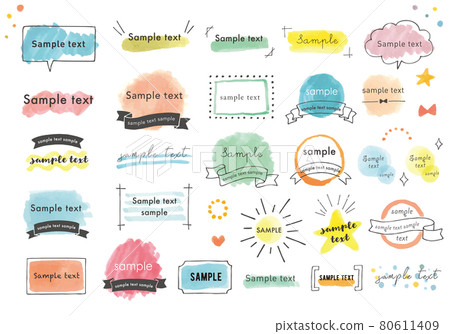 Sample text
Sample text
Sample text
Sample
Sample text
Sample text
Sample text
sample text sample
sample text
Sample text
sample text sample
sample text
sample text sample
sample text
sample text sample
sample text
Sample
sample text sample
sample
sample text sample
sample text
sample text
Sample text
sample text sample
Sample text
sample
SAMPLE
sample
text
sample
sample text sample
text
Sample text
sample
sample text sample
SAMPLE
Sample text
SAMPLE TEXT
sample text
PIXTA
80611409